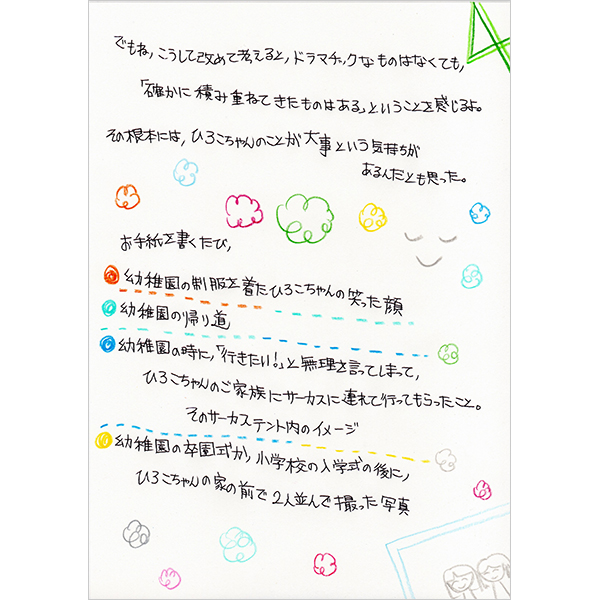 4
でもね,こうして改めて考えると,ドラマチックなものはなくても,
「確かに積み重ねてきたものはある」ということを感じるよ。
その根本には,ひろこちゃんのことが大事という気持ちが
あるんだとも思った。
お手紙を書くたび,
幼稚園の制服を着たひろこちゃんの笑った顔
幼稚園の帰り道
幼稚園の時に,「行きたい!」と無理を言ってしまって,
ひろこちゃんのご家族にサーカスに連れて行ってもらったこと。
そのサーカステント内のイメージ
幼稚園の卒園式か,小学校の入学式の後に,
ひろこちゃんの家の前で2人並んで撮った写真